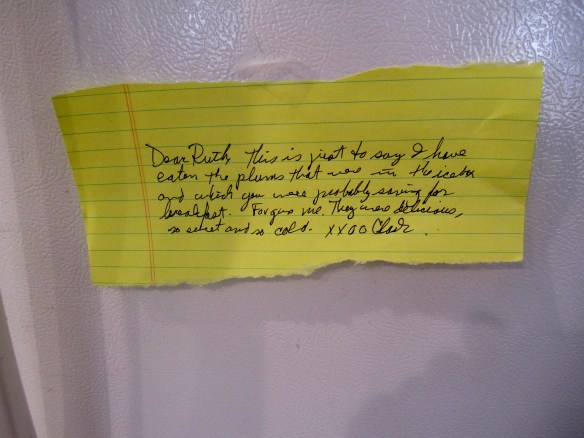 Dear Ruth, This is just to say I have
eaten the plums that were in the icebox
and which you were probably saving for
breakfast. Forgive me. They were delicious,
so sweet and so cold. XXOO